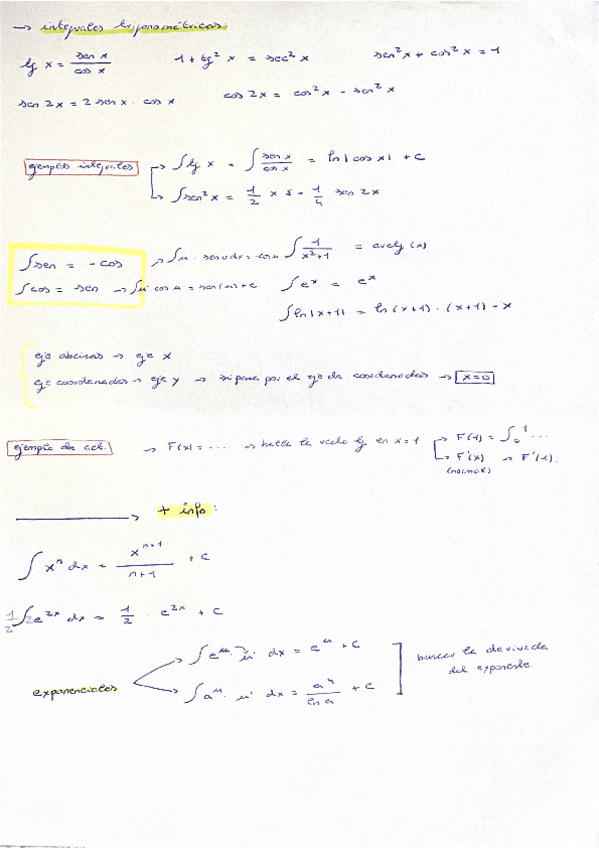 → integrales trigonométricas:
tg x = sen x / cos x   1 + tg² x = sec² x   sen² x + cos² x = 1
sen 2x = 2 sen x · cos x   cos 2x = cos² x - sen² x
ejemplos integrales → ∫ tg x = ∫ sen x / cos x = ln|cos x| + C
→ ∫ sen² x = 1/2 x - 1/4 sen 2x
∫ sen = -cos → ∫ u · sen u dx = cos u   ∫ 1 / x²+1 = arctg (x)
∫ cos = sen → ∫ u' cos u = sen(u) + c   ∫ eˣ = eˣ
∫ ln|x+1| = ln(x+1) · (x+1) - x
eje abcisas → eje X
eje coordenadas → eje y → si pasa por el eje de coordenadas → x=0
ejemplo de act. → F(x) = ... → halla la recta tg en x=1 → F(1) = ∫₀¹ ...
→ F'(x) → F'(1).
(normal)
→ + info:
∫ xⁿ dx = xⁿ⁺¹ / n+1 + C
1/2 ∫ 2e²ˣ dx = 1/2 · e²ˣ + C
exponenciales → ∫ eᵘ · u' dx = eᵘ + C
→ ∫ aᵘ · u' dx = aᵘ / ln a + C
buscar la derivada
del exponente